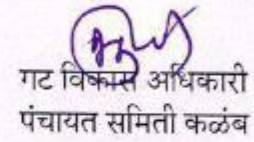 गट विकास अधिकारी
पंचायत समिती कळंब